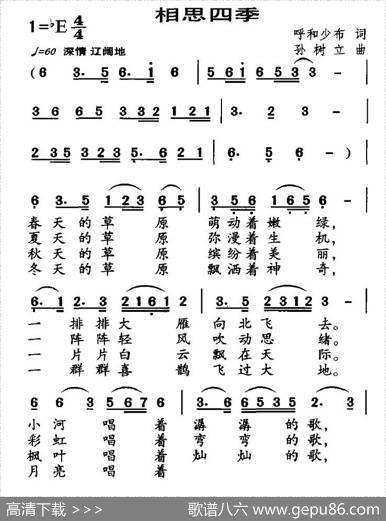 相思四季
1=♭E 4/4
呼和少布 词
♩=60 深情 辽阔地
孙树立 曲
(6 3. 5 6. 1 6 | 5 6 5 6 1 2 3 3 - |
3 6 6 5 3 1 2 2 - |
2 3 5 3 2 1 2 3. 5 6 2 1 | 6. 5 6 - )
6 3. 5 1 2 3 6 5 | 3 5 6 1 6 5 6 - |
春天的草原 萌动着嫩绿,
夏天的草原 弥漫着生机,
秋天的草原 缤纷着美丽,
冬天的草原 飘洒着神奇,
6. 1 2. 3 2 1 6 1 2 | 5 2. 5 2 3 1 2 3 - |
一排排大雁向北飞去。
一阵阵轻风吹动思绪。
一片片白云飘在天际。
一群群喜鹊飞过大地。
6 6 3 5 6 7 6 | 3. 5 6 6 5 2 3 - |
小河唱着潺潺的歌,
彩虹唱着弯弯的歌,
枫叶唱着灿灿的歌,
月亮唱着
高清下载 >>>
歌谱八六 www.gepu86.com